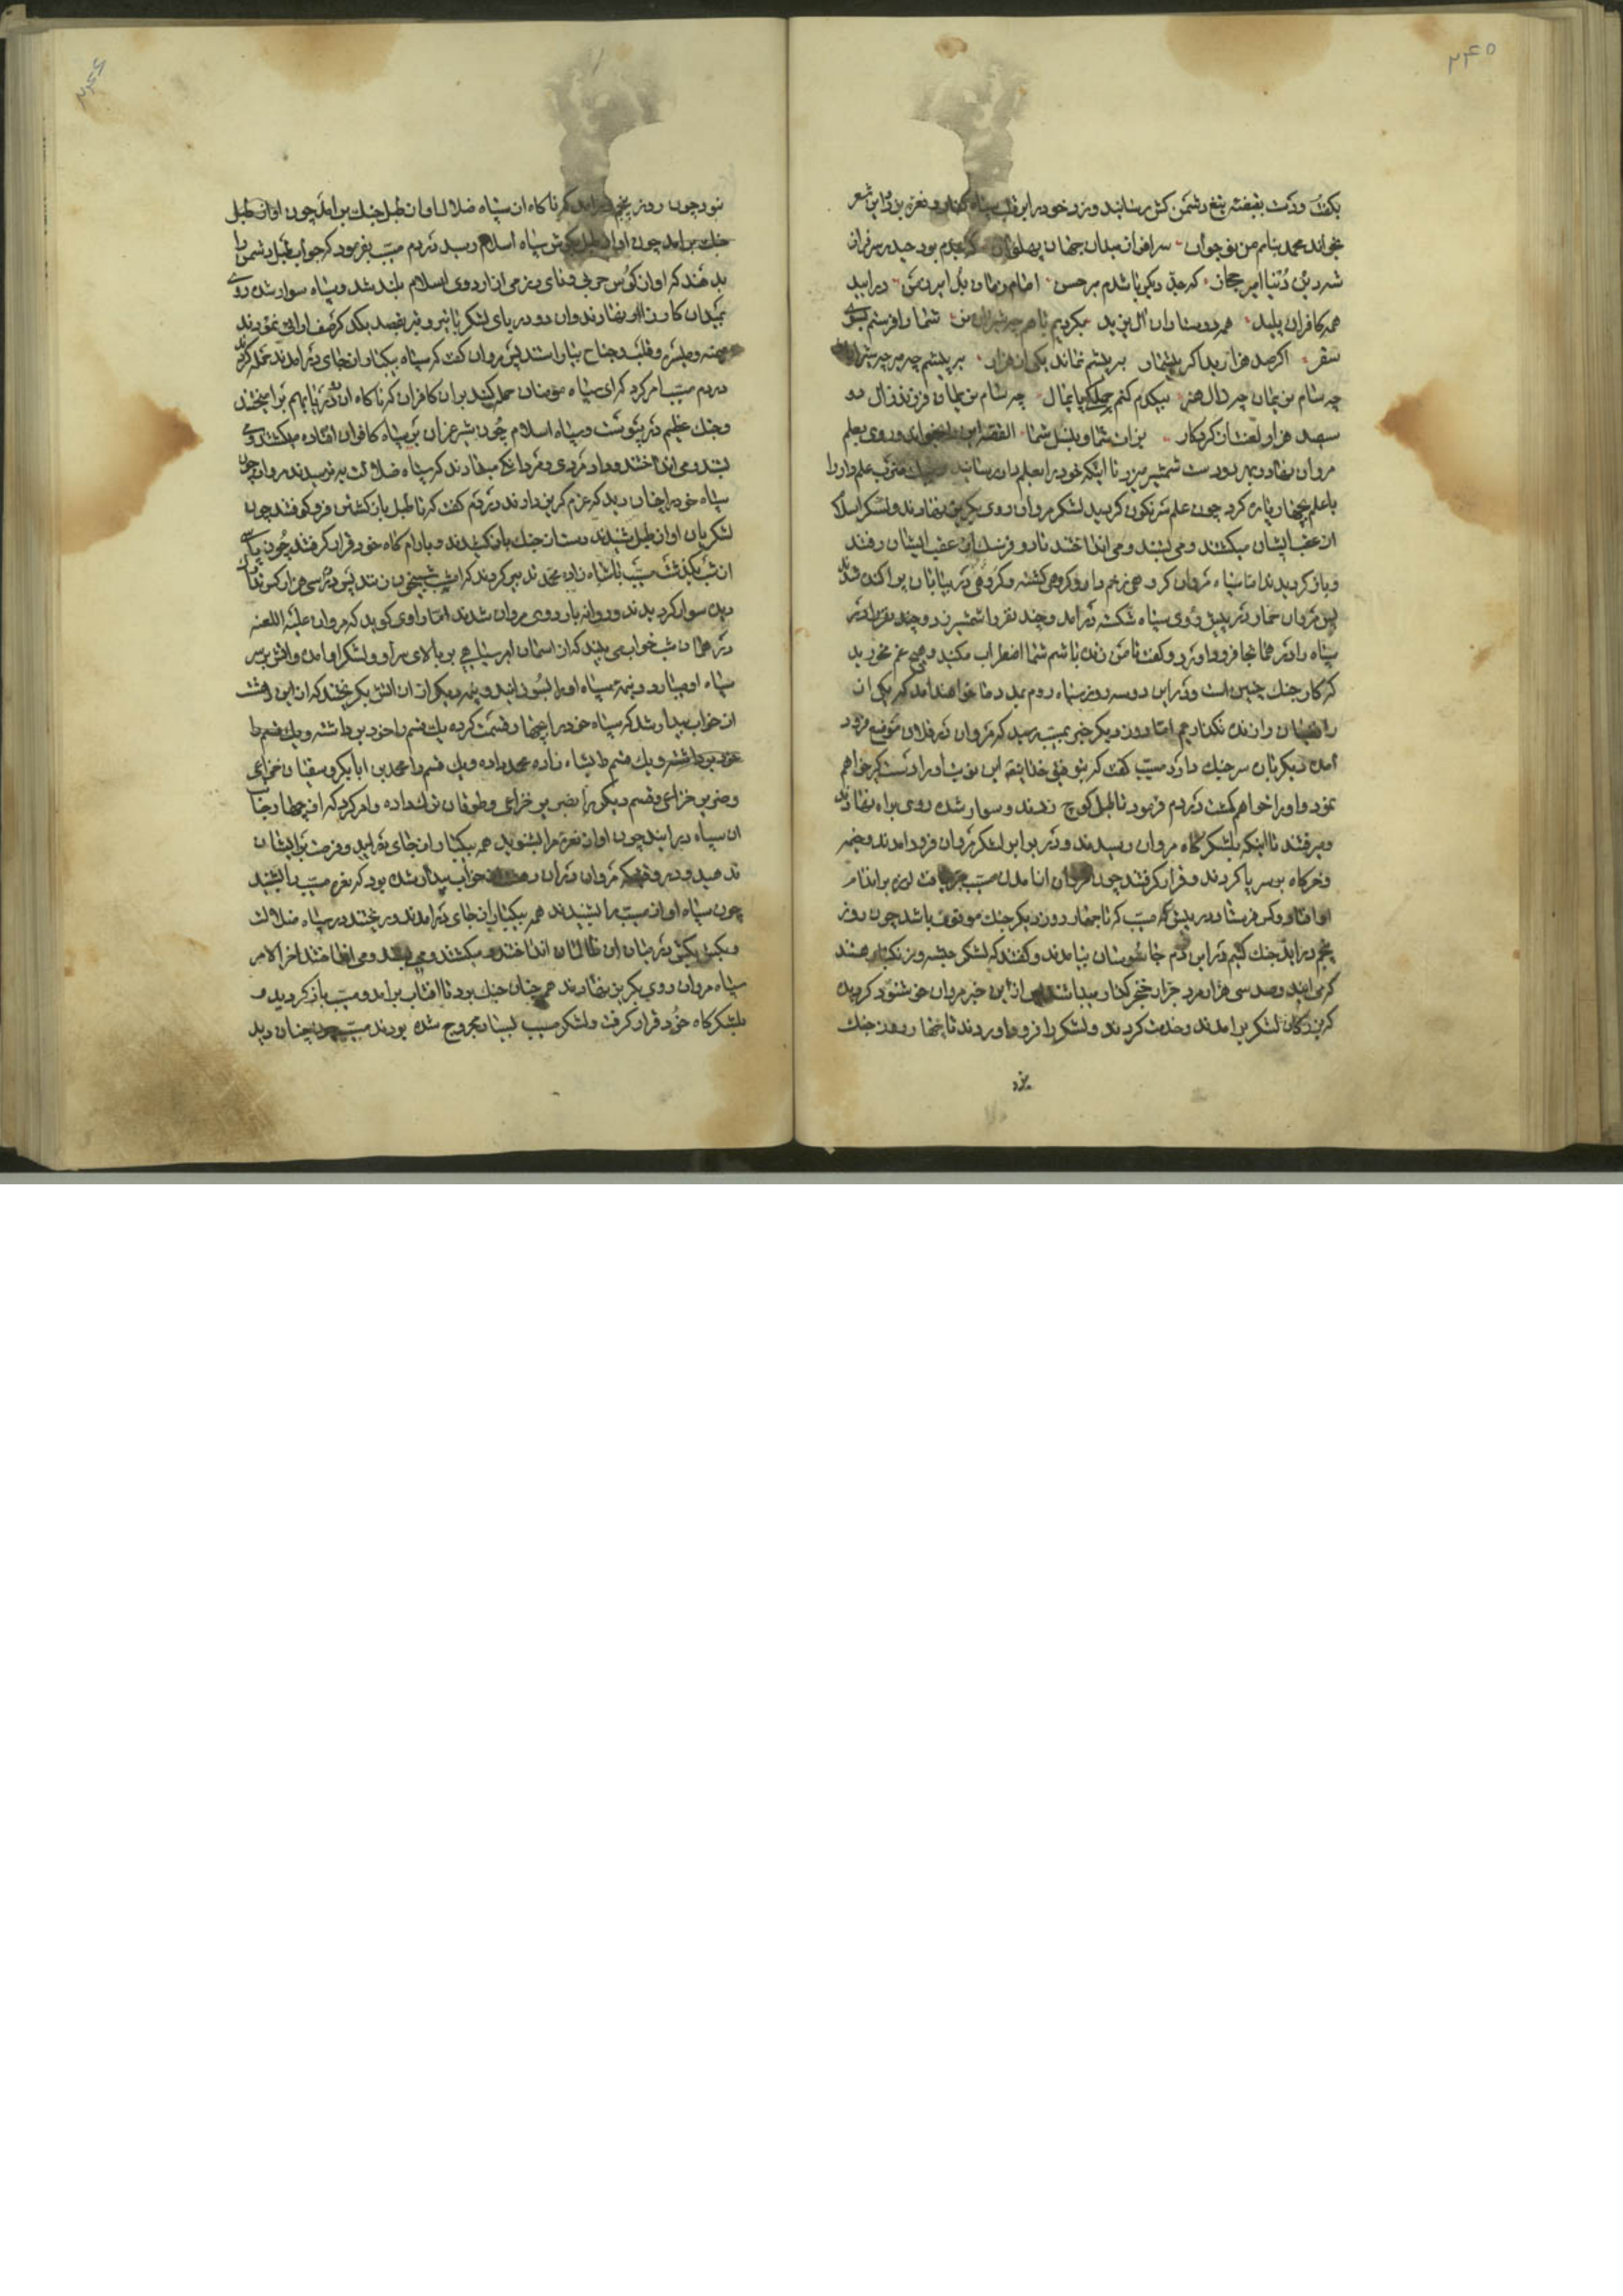 ۲۴۵
بکفت و دست بقبضه تیغ دشمن کش رسانید و زد خود را بر قلب سپاه کفار و نعره زد و این شعر
بخواند محمد بنام من نوجوان سرافراز میدان جهان پهلوان که جدم بود حیدر سرفراز
شه دین دنیا امیر حجاز که جد دیگر باشدم بر حسن امام زمان درآیید
همه کافران پلید همه دوستاران آل یزید بگردیم با هم شما را فرستم بسوی
سقر اگر صد هزارید اگر بیشمار به پیشم نماند یکی از هزار به پیشم چه
چه سام نریمان چه زال هنر بیکدم کنم جمله پایمال چه سام نریمان فرزند زال دو
سیصد هزار لعنت از کردکار بر آن شما و بنسل شما القصه این بخواند و روی بعلم
مروان نهاد و بهر دو دست شمشیر میزد تا اینکه خود را بعلمدار رسانید علمدار را
با علم چهار پاره کرد چون علم سرنکون کردید لشکر مروان روی بکریز نهادند و لشکر اسلام
از عقب ایشان میکشتند و می بستند و می انداختند تا دو فرسنک از عقب ایشان رفتند
و باز کردیدند اما سپاه مروان کروهی زخم دار و کروهی کشته و کروهی در بیابان پراکنده شدند
پس مروان حمار در پیش روی سپاه شکسته درآمد و چند نفر را شمشیر زد و چند نفر را
سپاه را در همانجا فرود آورد و کفت تا من زنده باشم شما اضطراب مکنید و هیچ غم مخورید
که کار جنک چنین است و در این دو سه روز سپاه روم بمدد ما خواهند آمد که یکی از
رافضیان را زنده نکذاریم اما روز دیکر خبر بمسیب رسید که مروان در فلان موضع فرود
آمده دیکر باز سر جنک دارد مسیب کفت که بتوفیق خدا
نمود و او را خواهم کشت در دم فرمود تا طبل کوچ زدند و سوار شده روی براه نهادند
و میرفتند تا اینکه بلشکرکاه مروان رسیدند و در برابر لشکر مروان فرود آمدند و خیمه
و خرکاه بر سر پا کردند و قرار کرفتند چون مروان از آمدن مسیب لرزه بر اندام
او افتاد و کس فرستاد در پیش که مسیب که تا چهار روز دیکر جنک موقوف باشد چون روز
پنجم درآید جنک کنیم در این دم جاسوسان بیامدند و کفتند که لشکر حبشه و زنکبار هستند
که می آیند و صد سی هزار مرد جرار خنجر کذار میباشند از این خبر مروان خوشنود کردید
که بزرکان لشکر برآمدند و خدمت کردند و لشکر را فرود آوردند تا چهار روز جنک
نبود
۲۴۶
نبود چون روز پنجم برآمد که ناکاه از سپاه ضلال آواز طبل جنک برآمد چون آواز طبل
جنک برآمد چون آواز طبل بکوش سپاه اسلام رسید در دم مسیب بفرمود که جواب طبل دشمن را
بدهند که آواز کوس حربی و نای رزمی از اردوی اسلام بلند شد و سپاه سوار شده روی
بمیدان کارزار نهادند و آن دو دریای لشکر بقصد یکدیکر صف آرائی نمودند
میمنه و میسره و قلب و جناح بیاراستند پس مروان کفت که سپاه بیکبار از جای درآمدند حمله کردند
در دم مسیب امر کرد که ای سپاه مؤمنان حمله کنید بر آن کافران که ناکاه آن دو دریا بهم برآمیختند
و جنک عظیم در پیوست و سپاه اسلام چون شیر غران بر سپاه کافران افتاده میکشتند و می
بستند و می انداختند و داد مردی و مردانکی میدادند که سپاه ضلالت بترسیدند مروان چون
سپاه خود را چنان دید که عزم کریز دارند در دم کفت که تا طبل بازکشتن فرو کوفتند چون
لشکریان آواز طبل شنیدند دست از جنک باز کشیدند و بآرامکاه خود قرار کرفتند چون پاسی
از شب بکذشت مسیب با شاهزاده محمد تدبیر کردند که امشب شبیخون زنند پس در سی هزار کس
سوار کردیدند و روانه باردوی مروان شدند اما راوی کوید که مروان علیه اللعنه
در همان شب خواب می بیند که از آسمان ابر سیاهی بر بالای سر او و لشکر او آمده و آتش بر سر
سپاه او میبارد و نیمه سپاه او را بسوزانید و نیمه دیکر از آن آتش بکریختند که از این دهشت
از خواب بیدار شد که سپاه خود را چهار قسمت کرده یک قسم را خود برداشته و یک قسم را
خود برداشته و یک قسم را بشاهزاده محمد داده و یک قسم را محمد بن ابابکر و سفیان خزاعی
و قسم دیکر را بضریر خزاعی و طوغان ترک داده و امر کرد که از چهار جانب
آن سپاه درآیند چون آواز نعره مرا بشنوید همه بیکبار از جای درآیید و فرصت بر ایشان
ندهید و در وقتیکه مروان در آن دهشت از خواب بیدار شده بود که نعره مسیب را بشنید
چون سپاه آواز مسیب را بشنیدند همه بیکبار از جای درآمدند و ریختند در سپاه ضلالت
و بکش بکش در میان آن ظالمان انداختند میکشتند و می بستند و می انداختند آخر الامر
سپاه مروان روی بکریز نهادند همچنان جنک بود تا آفتاب برآمد و مسیب باز کردید و
بلشکرکاه خود قرار کرفت و لشکر مسیب بسیار مجروح شده بودند مسیب چون چنان دید